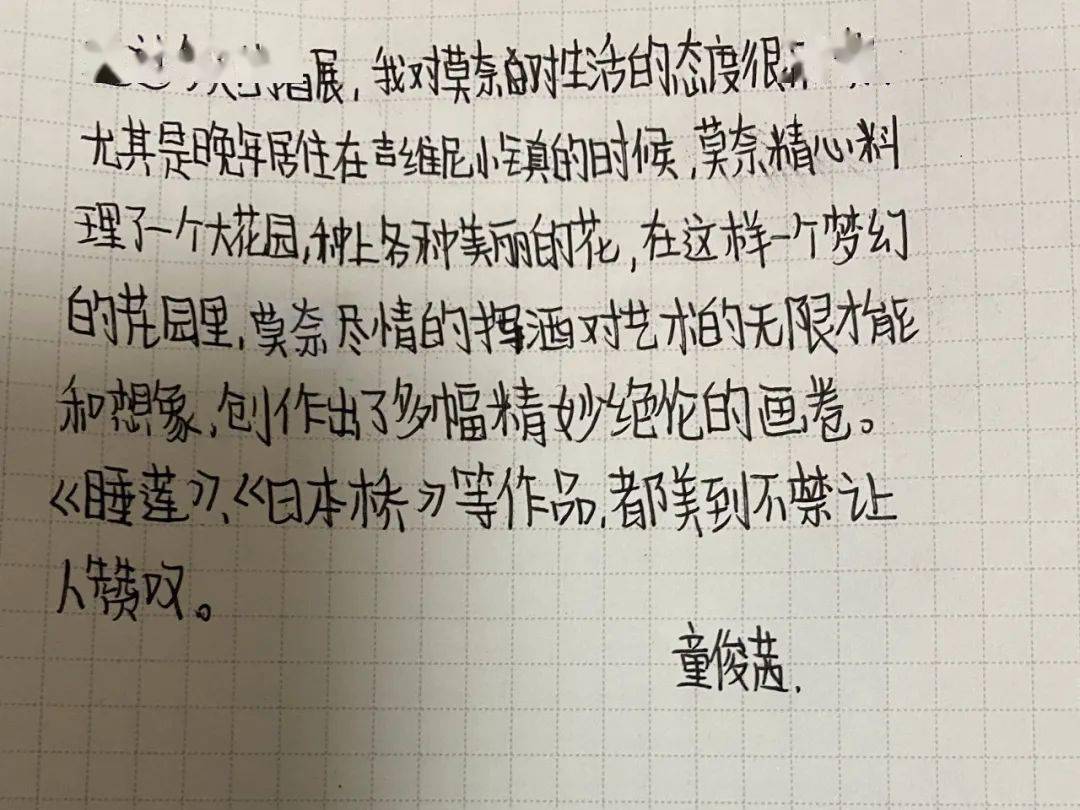 展，我对莫奈的对生活的态度很
尤其是晚年居住在吉维尼小镇的时候，莫奈精心料
理了一个大花园，种上各种美丽的花，在这样一个梦幻
的花园里，莫奈尽情的挥洒对艺术的无限才能
和想象，创作出了多幅精妙绝伦的画卷。
《睡莲》、《日本桥》等作品，都美到不禁让
人赞叹。
童俊茜.